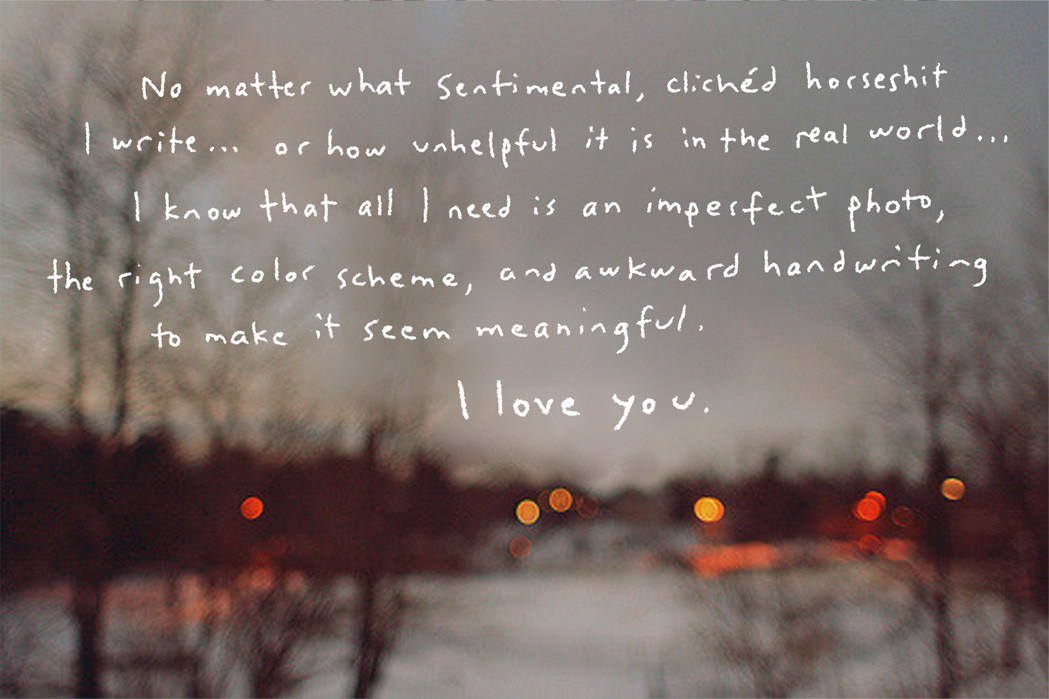 No matter what sentimental, clichéd horseshit
I write... or how unhelpful it is in the real world...
I know that all I need is an imperfect photo,
the right color scheme, and awkward handwriting
to make it seem meaningful.
I love you.